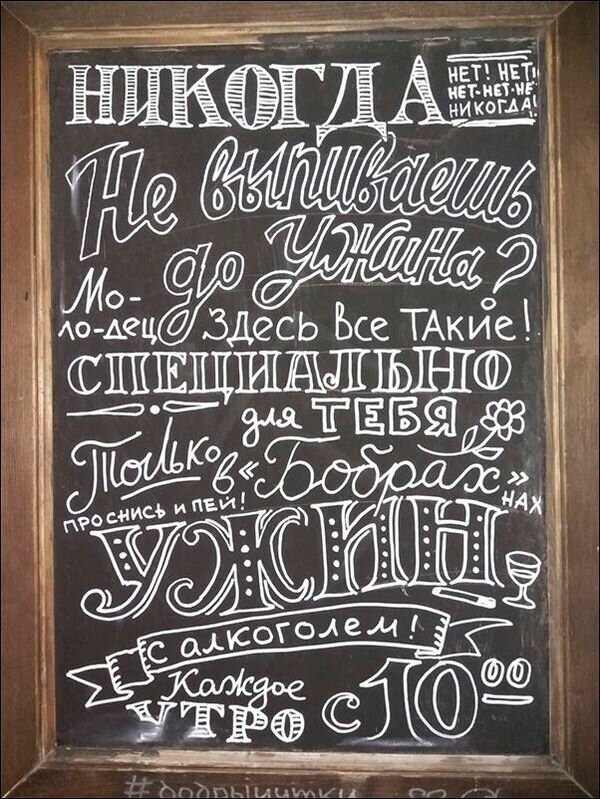 НИКОГДА
НЕТ! НЕТ!
НЕТ-НЕТ-НЕ
НИКОГДА!
Не выпиваешь
до ужина?
Мо-
ло-дец
Здесь все такие!
СПЕЦИАЛЬНО
для ТЕБЯ
Только в «Бобрах»
НАХ
ПРОСНИСЬ И ПЕЙ!
УЖИН
с алкоголем!
Каждое
УТРО с 10 00